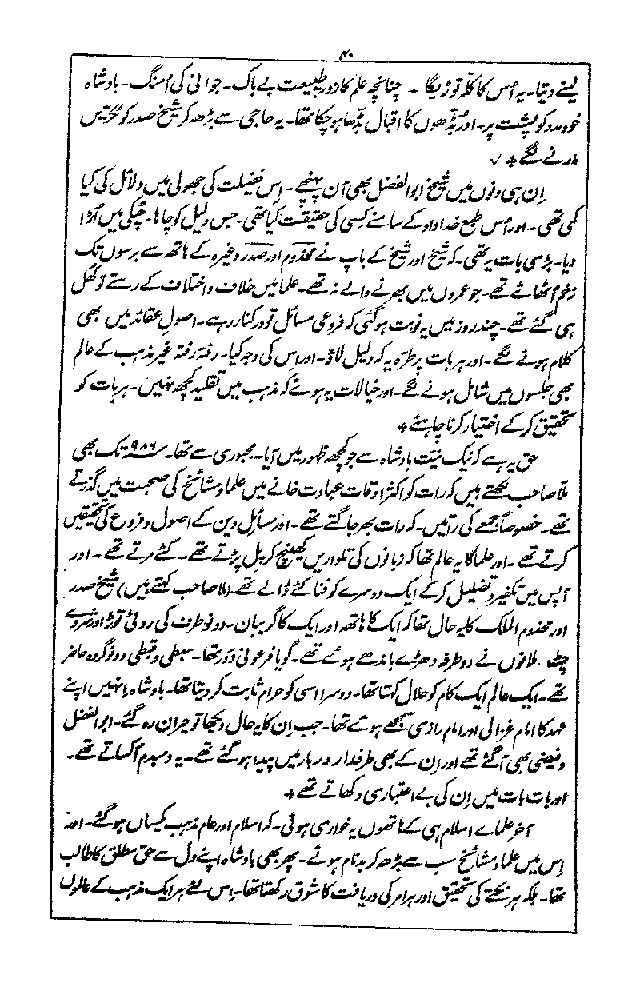 ۴۰
لینے دیتا۔ یہ اُس کا کلّہ توڑیگا ۔ چنانچہ علم کا زور طبیعت بے باک۔ جوانی کی اُمنگ۔ بادشاہ
خود مدد کو پشت پر۔ اور بڈھوں کا اقبال بڈھا ہو چکا تھا۔ یہ حاجی سے بڑھ کر شیخ صدر کو ٹکریں
مارنے لگے +
اِن ہی دنوں میں شیخ ابوالفضل بھی آن پہنچے۔ اس فضیلت کی جھولی میں دلائل کی کیا
کمی تھی۔ اور اُس طبع خدا داد کے سامنے کسی کی حقیقت کیا تھی۔ جس دلیل کو چاہا۔ چٹکی میں اُڑا
دیا۔ بڑی بات یہ تھی۔ کہ شیخ اور شیخ کے باپ نے مخدوم اور صدر وغیرہ کے ہاتھ سے برسوں تک
زخم اُٹھائے تھے۔ جو عمروں میں بھرنے والے نہ تھے۔ علما میں خلاف و اختلاف کے رستے تو کھل
ہی گئے تھے۔ چند روز میں یہ نوبت ہو گئی کہ فروعی مسائل تو درکنار رہے۔ اصول عقائد میں بھی
کلام ہونے لگے۔ اور ہر بات پر طرہ یہ کہ دلیل لاؤ۔ اور اس کی وجہ کیا۔ رفتہ رفتہ غیر مذہب کے عالم
بھی جلسوں میں شامل ہونے لگے۔ اور خیالات یہ ہوئے کہ مذہب میں تقلید کچھ نہیں۔ ہر بات کو
تحقیق کر کے اختیار کرنا چاہئے +
حق یہ ہے کہ نیک نیت بادشاہ سے جو کچھ ظہور میں آیا۔ مجبوری سے تھا۔ ۹۸۶ھ تک بھی
ملا صاحب لکھتے ہیں کہ رات کو اکثر اوقات عبادت خانے میں علما و مشائخ کی صحبت میں گذرتے
تھے۔ خصوصاً جمعے کی راتیں۔ کہ رات بھر جاگتے تھے۔ اور مسائل دین کے اصول و فروع کی تحقیقیں
کرتے تھے۔ اور علما کا یہ عالم تھا کہ زبانوں کی تلواریں کھینچ کر پل پڑتے تھے۔ کٹے مرتے تھے۔ اور
آپس میں تکفیر و تضلیل کر کے ایک دوسرے کو فنا کئے ڈالتے تھے۔ (ملا صاحب کہتے ہیں) شیخ صدر
اور مخدوم الملک کا یہ حال تھا کہ ایک کا ہاتھ اور ایک کا گریبان۔ دو نو طرف کی روٹی توڑ اور شوربے
چٹ ملّانوں نے دو طرفہ دھڑے باندھے ہوئے تھے۔ گویا فرعونی دَور تھا۔ سبطی و قبطی دونو گروہ حاضر
تھے۔ ایک عالم ایک کام کو حلال کہتا تھا۔ دوسرا اسی کو حرام ثابت کر دیتا تھا۔ بادشاہ انہیں اپنے
عہد کا امام غزالی اور امام رازی سمجھے ہوئے تھا۔ جب ان کا یہ حال دیکھا تو حیران رہ گئے۔ ابوالفضل
و فیضی بھی آگئے تھے اور ان کے بھی طرفدار دربار میں پیدا ہو گئے تھے۔ یہ دمبدم اُکساتے تھے۔
اور بات بات میں ان کی بے اعتباری دکھاتے تھے +
آخر علمائے اسلام ہی کے ہاتھوں یہ خواری ہوئی۔ کہ اسلام اور عام مذہب یکساں ہو گئے۔ اور
اِس میں علما و مشائخ سب سے بڑھ کر بدنام ہوئے۔ پھر بھی بادشاہ اپنے دل سے حق مطلق کا طالب
تھا۔ بلکہ ہر نکتے کی تحقیق اور ہر امر کی دریافت کا شوق رکھتا تھا۔ اس لئے ہر ایک مذہب کے عالموں